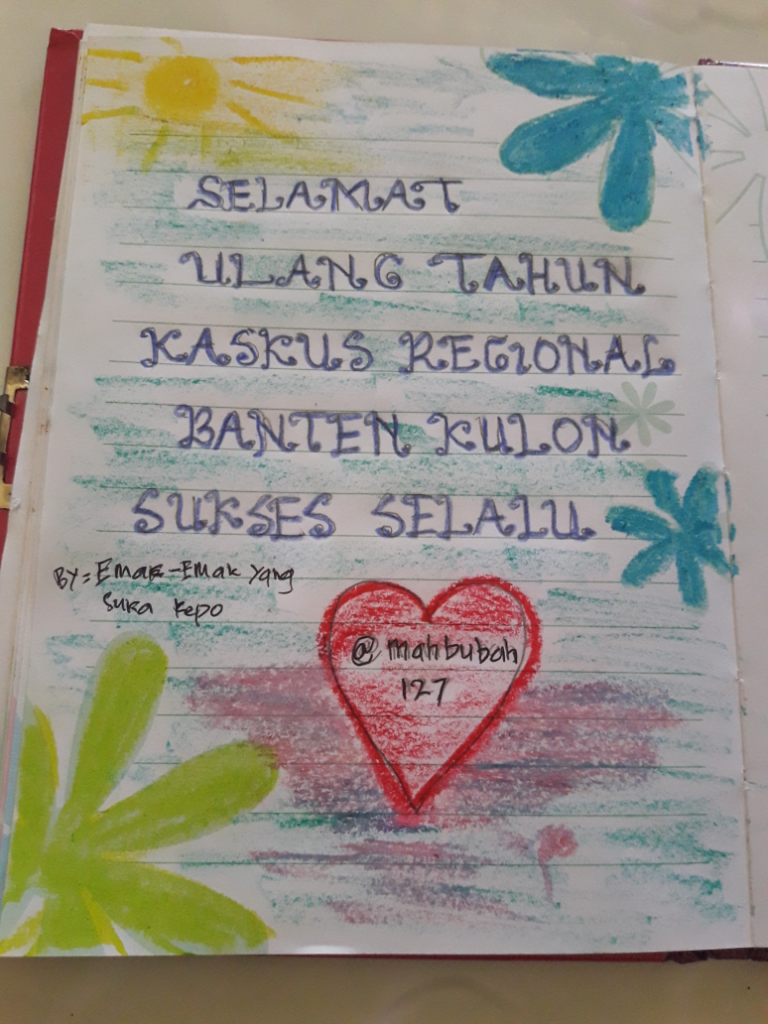 SELAMAT
ULANG TAHUN
KASKUS REGIONAL
BANTEN KULON
SUKSES SELALU
BY = Emak-Emak yang
suka kepo
@mahbubah
127